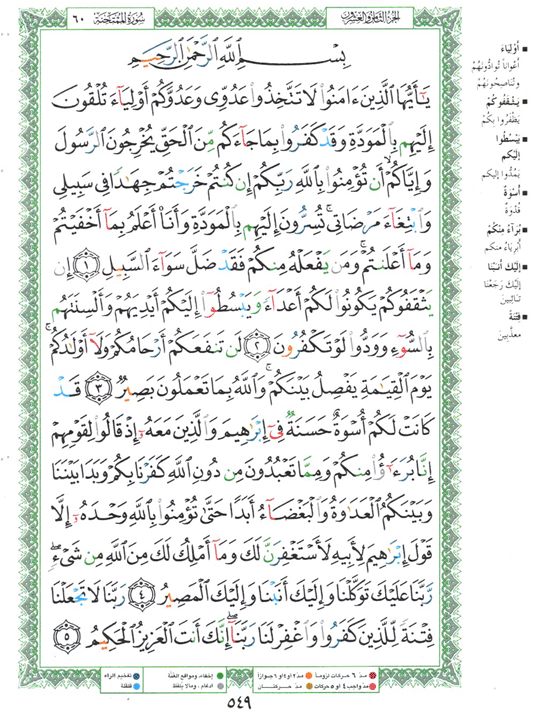 الجزء الثامن والعشرون
سُورَةُ المُمْتَحنَة
٦٠
بِسْمِ اللَّهِ الرَّحْمَٰنِ الرَّحِيمِ
يَٰٓأَيُّهَا الَّذِينَ ءَامَنُوا لَا تَتَّخِذُوا عَدُوِّى وَعَدُوَّكُمْ أَوْلِيَآءَ تُلْقُونَ
إِلَيْهِم بِالْمَوَدَّةِ وَقَدْ كَفَرُوا بِمَا جَآءَكُم مِّنَ الْحَقِّ يُخْرِجُونَ الرَّسُولَ
وَإِيَّاكُمْ أَن تُؤْمِنُوا بِاللَّهِ رَبِّكُمْ إِن كُنتُمْ خَرَجْتُمْ جِهَٰدًا فِى سَبِيلِى
وَابْتِغَآءَ مَرْضَاتِى تُسِرُّونَ إِلَيْهِم بِالْمَوَدَّةِ وَأَنَا۠ أَعْلَمُ بِمَآ أَخْفَيْتُمْ
وَمَآ أَعْلَنتُمْ وَمَن يَفْعَلْهُ مِنكُمْ فَقَدْ ضَلَّ سَوَآءَ السَّبِيلِ ﴿١﴾ إِن
يَثْقَفُوكُمْ يَكُونُوا لَكُمْ أَعْدَآءً وَيَبْسُطُوٓا إِلَيْكُمْ أَيْدِيَهُمْ وَأَلْسِنَتَهُم
بِالسُّوٓءِ وَوَدُّوا لَوْ تَكْفُرُونَ ﴿٢﴾ لَن تَنفَعَكُمْ أَرْحَامُكُمْ وَلَآ أَوْلَٰدُكُمْ
يَوْمَ الْقِيَٰمَةِ يَفْصِلُ بَيْنَكُمْ وَاللَّهُ بِمَا تَعْمَلُونَ بَصِيرٌ ﴿٣﴾ قَدْ
كَانَتْ لَكُمْ أُسْوَةٌ حَسَنَةٌ فِىٓ إِبْرَٰهِيمَ وَالَّذِينَ مَعَهُۥٓ إِذْ قَالُوا لِقَوْمِهِمْ
إِنَّا بُرَءَٰٓؤُا مِنكُمْ وَمِمَّا تَعْبُدُونَ مِن دُونِ اللَّهِ كَفَرْنَا بِكُمْ وَبَدَا بَيْنَنَا
وَبَيْنَكُمُ الْعَدَٰوَةُ وَالْبَغْضَآءُ أَبَدًا حَتَّىٰ تُؤْمِنُوا بِاللَّهِ وَحْدَهُۥٓ إِلَّا
قَوْلَ إِبْرَٰهِيمَ لِأَبِيهِ لَأَسْتَغْفِرَنَّ لَكَ وَمَآ أَمْلِكُ لَكَ مِنَ اللَّهِ مِن شَىْءٍ
رَّبَّنَا عَلَيْكَ تَوَكَّلْنَا وَإِلَيْكَ أَنَبْنَا وَإِلَيْكَ الْمَصِيرُ ﴿٤﴾ رَبَّنَا لَا تَجْعَلْنَا
فِتْنَةً لِّلَّذِينَ كَفَرُوا وَاغْفِرْ لَنَا رَبَّنَآ إِنَّكَ أَنتَ الْعَزِيزُ الْحَكِيمُ ﴿٥﴾
■ أَوْلِيَاءَ
أعْواناً تُوادُّونَهُمْ
وتُناصِحُونَهُمْ
■ يَثْقَفُوكُمْ
يَظْفَرُوا بكُمْ
■ يَبْسُطُوا
إلَيْكم
يَمُدُّوا إليكم
■ أُسْوَةٌ
قُدْوَةٌ
■ بُرَآءُ مِنْكُمْ
أبْرِيَاءُ منكم
■ إلَيْكَ أنَبْنَا
إلَيْكَ رَجَعْنَا
تائِبينَ
■ فِتْنَةً
معذَّبينَ
مدّ ٦ حركات لزوماً
مدّ ٢ أو ٤ أو ٦ جوازاً
إخفاء، ومواقع الغُنَّة
تفخيم الراء
مدّ واجب ٤ أو ٥ حركات
مدّ حركتان
ادغام، ومالا يُلفَظ
قلقلة
٥٤٩